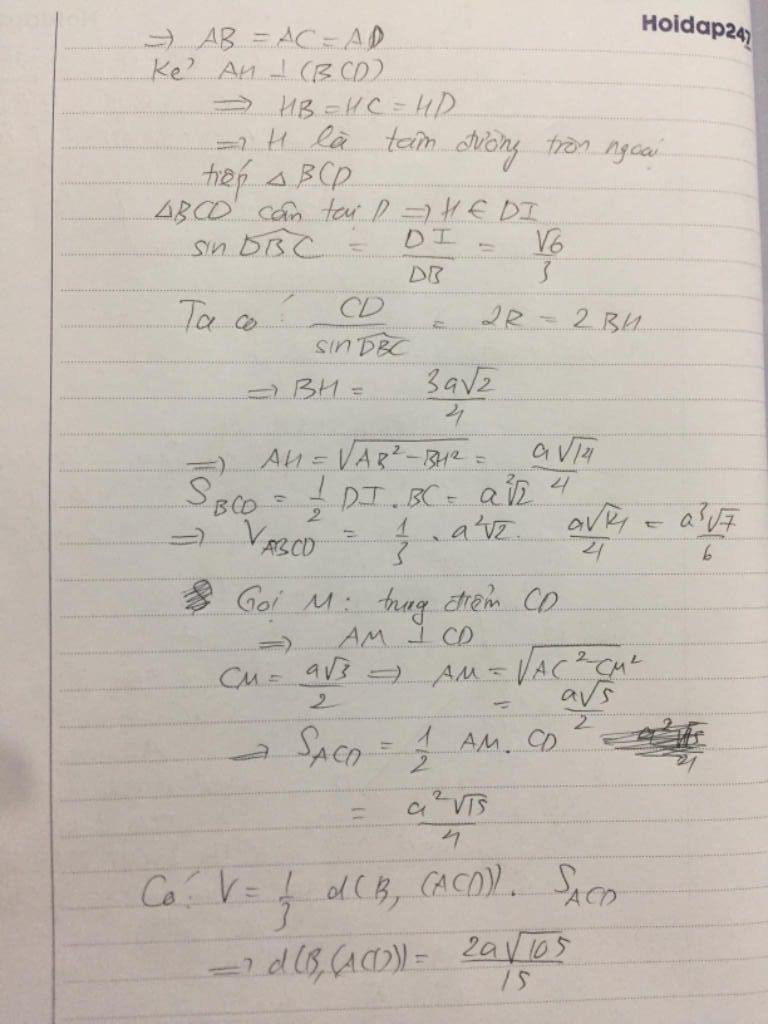 Hoidap247
⇒ AB = AC = AD
Kẻ AH ⊥ (BCD)
⇒ HB = HC = HD
⇒ H là tâm đường tròn ngoại
tiếp △BCD
△BCD cân tại D ⇒ H ∈ DI
sin DBC = DI/DB = √6/3
Ta có: CD/sin DBC = 2R = 2BH
⇒ BH = 3a√2/4
⇒ AH = √(AB² - BH²) = a√14/4
S_BCD = 1/2 DI . BC = a²√2
⇒ V_ABCD = 1/3 . a²√2 . a√14/4 = a³√7/6
Gọi M: trung điểm CD
⇒ AM ⊥ CD
CM = a√3/2 ⇒ AM = √(AC² - CM²)
= a√5/2
⇒ S_ACD = 1/2 AM . CD
= a²√15/4
Có: V = 1/3 d(B, (ACD)) . S_ACD
⇒ d(B,(ACD)) = 2a√105/15